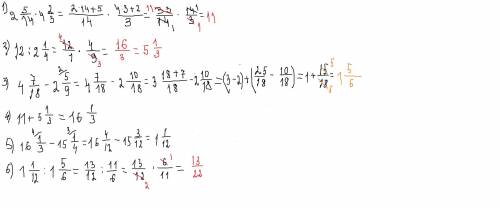 1) 2 5/14 · 4 2/3 = (2·14+5)/14 · (4·3+2)/3 = 33/14 · 14/3 = 11
2) 12 : 2 1/4 = 12/1 · 4/9 = 16/3 = 5 1/3
3) 4 7/18 - 2 5/9 = 4 7/18 - 2 10/18 = 3 (18+7)/18 - 2 10/18 = (3-2) + (25/18 - 10/18) = 1 + 15/18 = 1 5/6
4) 11 + 5 1/3 = 16 1/3
5) 16 1/3 - 15 1/4 = 16 4/12 - 15 3/12 = 1 1/12
6) 1 1/12 : 1 5/6 = 13/12 : 11/6 = 13/12 · 6/11 = 13/22